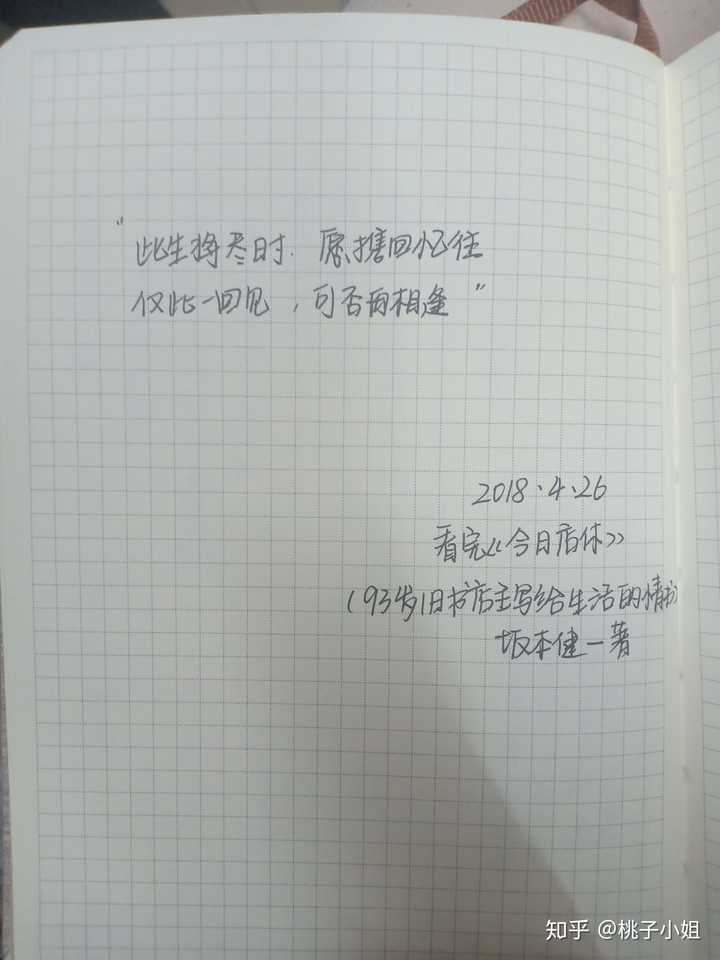 “此生将尽时.愿携回忆往
仅此一回见,可否再相逢”
2018.4.26
看完《今日店休》
(93岁旧书店主写给生活的情书)
坂本健一著
知乎 @桃子小姐